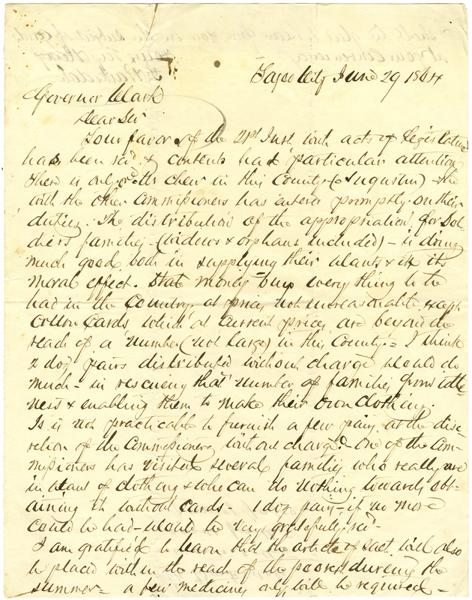 June 29 1864
Governor Clark
Dear Sir
Your favor of the 21st Inst with acts of Legislature
has been rec'd & contents had particular attention
There is only one in this County (Sabine)
with the other Commissioners has entered promptly on their
duties. The distribution of the appropriation for Sol
diers families (widows & orphans included) is doing
much good, both in supplying their wants & in its
moral effect. State money buys every thing to be
had in the Country at prices not unreasonable, except
Cotton Cards, which at current prices are beyond the
reach of a number (not large) in this County. I think
2 doz pairs distributed without charge would do
much in rescuing that number of families from idle
ness & enabling them to make their own clothing.
Is it not practicable to furnish a few pairs at the disc
retion of the Commissioners without charge? One of the Com
missioners has visited several families who really are
in want of clothing & who can do nothing towards obt
aining it without cards - 1 doz pair - if no more
could be had - would be very gratefully rec'd -
I am gratified to learn that the article of salt will also
be placed within the reach of the poor, during the
summer - a few medicines only will be required -